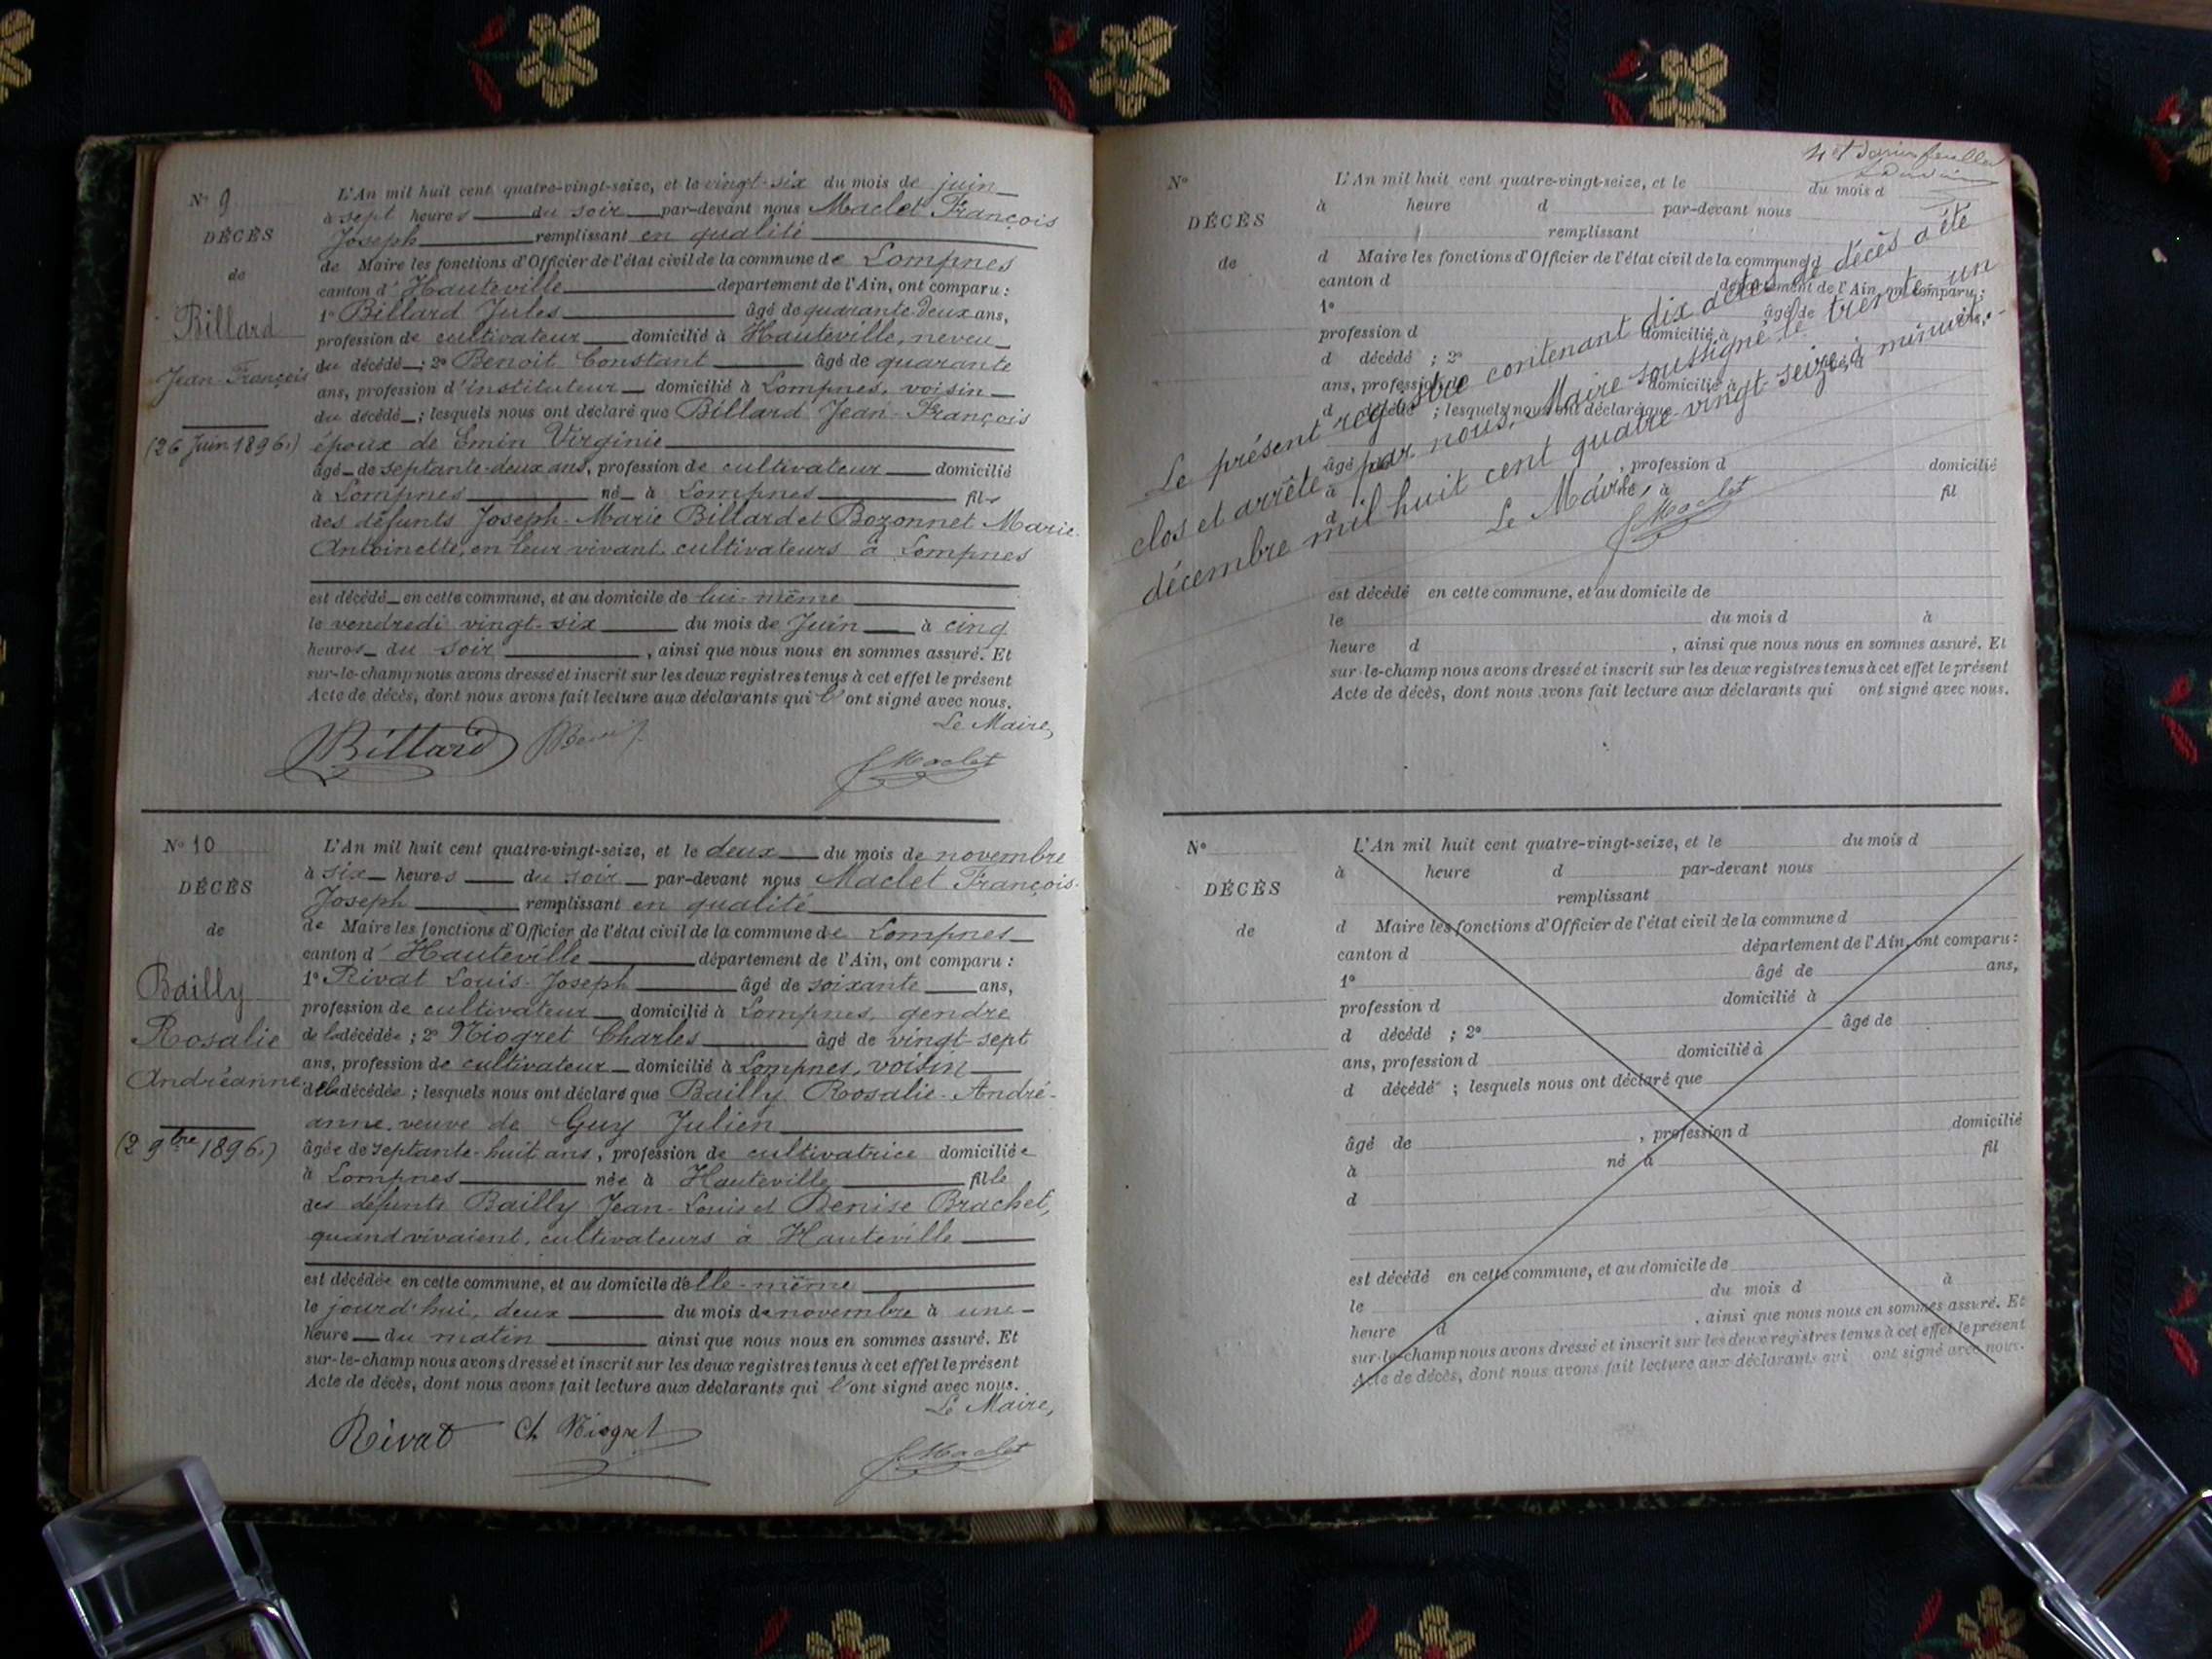 N° 9
DÉCÈS
de
Billard
Jean-François
(26 Juin 1896.)
L'An mil huit cent quatre-vingt-seize, et le vingt-six du mois de juin
à sept heures du soir par-devant nous Maclet François
Joseph remplissant en qualité
de Maire les fonctions d'Officier de l'état civil de la commune de Lompnes
canton d'Hauteville département de l'Ain, ont comparu :
1° Billard Jules âgé de quarante-deux ans,
profession de cultivateur domicilié à Hauteville, neveu
du décédé ; 2° Benoit Constant âgé de quarante
ans, profession d'instituteur domicilié à Lompnes, voisin
du décédé ; lesquels nous ont déclaré que Billard Jean-François
époux de Emin Virginie
âgé de septante-deux ans, profession de cultivateur domicilié
à Lompnes né à Lompnes fils
des défunts Joseph-Marie Billard et Bozonnet Marie-
Antoinette, en leur vivant cultivateurs à Lompnes
est décédé en cette commune, et au domicile de lui-même
le vendredi vingt-six du mois de Juin à cinq
heures du soir , ainsi que nous nous en sommes assuré. Et
sur-le-champ nous avons dressé et inscrit sur les deux registres tenus à cet effet le présent
Acte de décès, dont nous avons fait lecture aux déclarants qui l'ont signé avec nous.
Le Maire,
Billard Benoit
Maclet
N° 10
DÉCÈS
de
Bailly
Rosalie
Andréanne
(2 9bre 1896.)
L'An mil huit cent quatre-vingt-seize, et le deux du mois de novembre
à six heures du soir par-devant nous Maclet François-
Joseph remplissant en qualité
de Maire les fonctions d'Officier de l'état civil de la commune de Lompnes
canton d'Hauteville département de l'Ain, ont comparu :
1° Rivat Louis-Joseph âgé de soixante ans,
profession de cultivateur domicilié à Lompnes, gendre
de la décédée ; 2° Niogret Charles âgé de vingt-sept
ans, profession de cultivateur domicilié à Lompnes, voisin
de la décédée ; lesquels nous ont déclaré que Bailly Rosalie-André-
anne, veuve de Guy Julien
âgée de septante-huit ans, profession de cultivatrice domiciliée
à Lompnes née à Hauteville fille
des défunts Bailly Jean-Louis et Denise Brachet,
quand vivaient, cultivateurs à Hauteville
est décédée en cette commune, et au domicile d'elle-même
le jourd'hui, deux du mois de novembre à une
heure du matin ainsi que nous nous en sommes assuré. Et
sur-le-champ nous avons dressé et inscrit sur les deux registres tenus à cet effet le présent
Acte de décès, dont nous avons fait lecture aux déclarants qui l'ont signé avec nous.
Le Maire,
Rivat Ch Niogret
Maclet
4 et dernier feuillet
N°
DÉCÈS
de
L'An mil huit cent quatre-vingt-seize, et le du mois d
à heure d par-devant nous
remplissant
d Maire les fonctions d'Officier de l'état civil de la commune d
canton d département de l'Ain, ont comparu :
1° âgé de
profession d domicilié à
d décédé ; 2°
ans, profession d domicilié à
d décédé ; lesquels nous ont déclaré que
âgé de , profession d domicilié
à né à fil
d
est décédé en cette commune, et au domicile de
le du mois d à
heure d , ainsi que nous nous en sommes assuré. Et
sur-le-champ nous avons dressé et inscrit sur les deux registres tenus à cet effet le présent
Acte de décès, dont nous avons fait lecture aux déclarants qui ont signé avec nous.
Le présent registre contenant dix actes de décès a été
clos et arrêté par nous, Maire soussigné le trente un
décembre mil huit cent quatre vingt seize, à minuit.
Le Maire,
Maclet
N°
DÉCÈS
de
L'An mil huit cent quatre-vingt-seize, et le du mois d
à heure d par-devant nous
remplissant
d Maire les fonctions d'Officier de l'état civil de la commune d
canton d département de l'Ain, ont comparu :
1° âgé de ans,
profession d domicilié à
d décédé ; 2° âgé de
ans, profession d domicilié à
d décédé ; lesquels nous ont déclaré que
âgé de , profession d domicilié
à né à fil
d
est décédé en cette commune, et au domicile de
le du mois d à
heure d , ainsi que nous nous en sommes assuré. Et
sur-le-champ nous avons dressé et inscrit sur les deux registres tenus à cet effet le présent
Acte de décès, dont nous avons fait lecture aux déclarants qui ont signé avec nous.